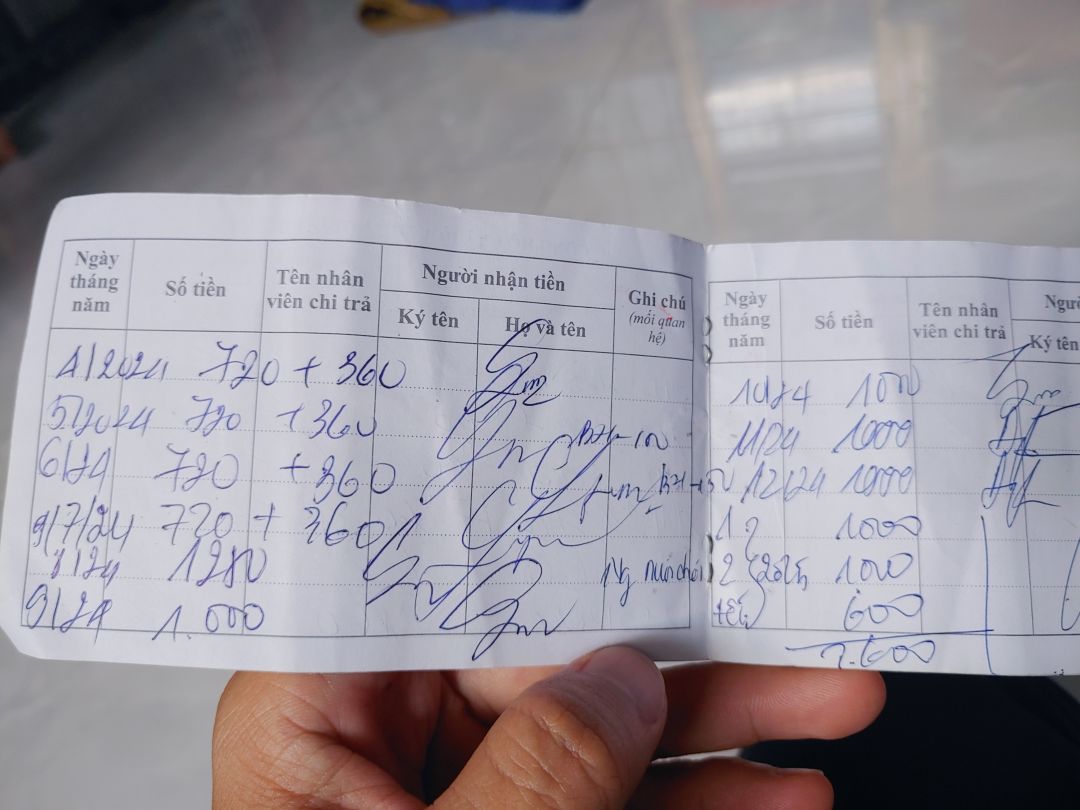 Ngày tháng năm
Số tiền
Tên nhân viên chi trả
Người nhận tiền
Ký tên
Họ và tên
Ghi chú
(mối quan hệ)
4/2024 720 + 360
5/2024 720 + 360
6/24 720 + 360
9/7/24 720 + 360
8/24 1280
9/24 1.000
Ngày tháng năm
Số tiền
Tên nhân viên chi trả
Ký tên
10/24 1000
11/24 1000
12/24 1000
1 1000
2 (2025 1000
tết) 600
2.600